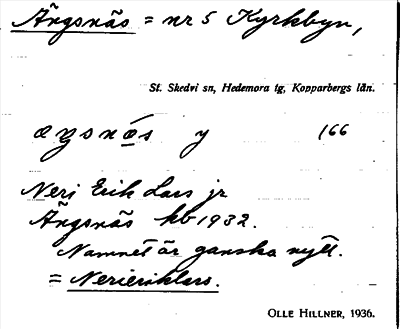 Ängsnäs = nr 5 Kyrkbyn,
St. Skedvi sn, Hedemora tg, Kopparbergs län.
y 166
Neri Erik Lars jr
Ängsnäs kb 1932.
Namnet är ganska nytt.
= Nerieriklars.
OLLE HILLNER, 1936.